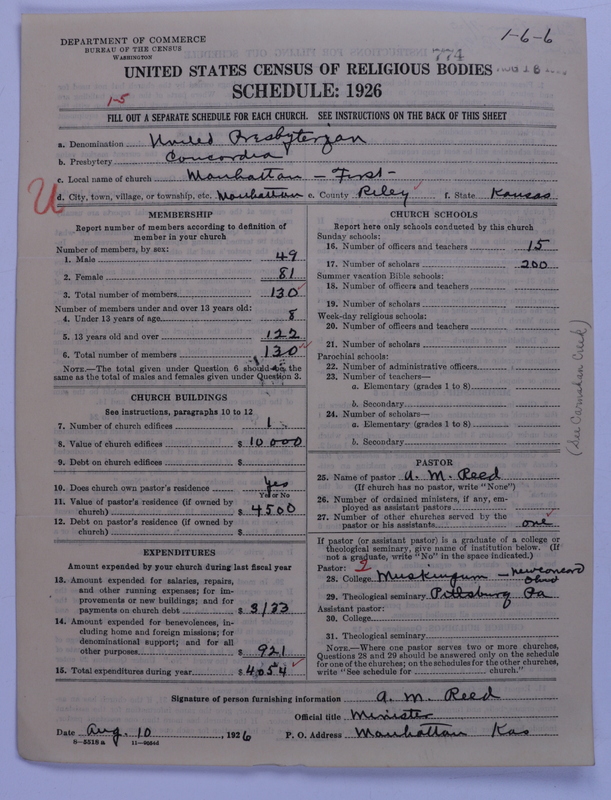 DEPARTMENT OF COMMERCE
BUREAU OF THE CENSUS
WASHINGTON
1-6-6
774
AUG 18
UNITED STATES CENSUS OF RELIGIOUS BODIES
SCHEDULE: 1926
1-5
FILL OUT A SEPARATE SCHEDULE FOR EACH CHURCH. SEE INSTRUCTIONS ON THE BACK OF THIS SHEET
a. Denomination United Presbyterian
b. Presbytery Concordia
c. Local name of church Manhattan - First -
U
d. City, town, village, or township, etc. Manhattan e. County Riley f. State Kansas
MEMBERSHIP
Report number of members according to definition of
member in your church
Number of members, by sex:
1. Male 49
2. Female 81
3. Total number of members 130
Number of members under and over 13 years old:
4. Under 13 years of age 8
5. 13 years old and over 122
6. Total number of members 130
NOTE.—The total given under Question 6 should be the
same as the total of males and females given under Question 3.
CHURCH BUILDINGS
See instructions, paragraphs 10 to 12
7. Number of church edifices 1
8. Value of church edifices $ 10000
9. Debt on church edifices $
10. Does church own pastor's residence Yes
Yes or No
11. Value of pastor's residence (if owned by
church) $ 4500
12. Debt on pastor's residence (if owned by
church) $
EXPENDITURES
Amount expended by your church during last fiscal year
13. Amount expended for salaries, repairs,
and other running expenses; for im-
provements or new buildings; and for
payments on church debt $ 3133
14. Amount expended for benevolences, in-
cluding home and foreign missions; for
denominational support; and for all
other purposes $ 921
15. Total expenditures during year $ 4054
CHURCH SCHOOLS
Report here only schools conducted by this church
Sunday schools:
16. Number of officers and teachers 15
17. Number of scholars 200
Summer vacation Bible schools:
18. Number of officers and teachers
19. Number of scholars
Week-day religious schools:
20. Number of officers and teachers
21. Number of scholars
Parochial schools:
22. Number of administrative officers
23. Number of teachers—
a. Elementary (grades 1 to 8)
b. Secondary
24. Number of scholars—
a. Elementary (grades 1 to 8)
b. Secondary
PASTOR
25. Name of pastor A. M. Reed
(If church has no pastor, write "None")
26. Number of ordained ministers, if any, em-
ployed as assistant pastors
27. Number of other churches served by the
pastor or his assistants one
If pastor (or assistant pastor) is a graduate of a college or
theological seminary, give name of institution below. (If
not a graduate, write "No" in the space indicated.)
Pastor: 2
28. College Muskingum - New Concord
Ohio
29. Theological seminary Pittsburg Pa
Assistant pastor:
30. College
31. Theological seminary
NOTE.—Where one pastor serves two or more churches,
Questions 28 and 29 should be answered only on the schedule
for one of the churches; on the schedules for the other churches,
write "See schedule for church."
Signature of person furnishing information A. M. Reed
Official title Minister
Date Aug. 10, 1926 P. O. Address Manhattan Kas
8-5518a